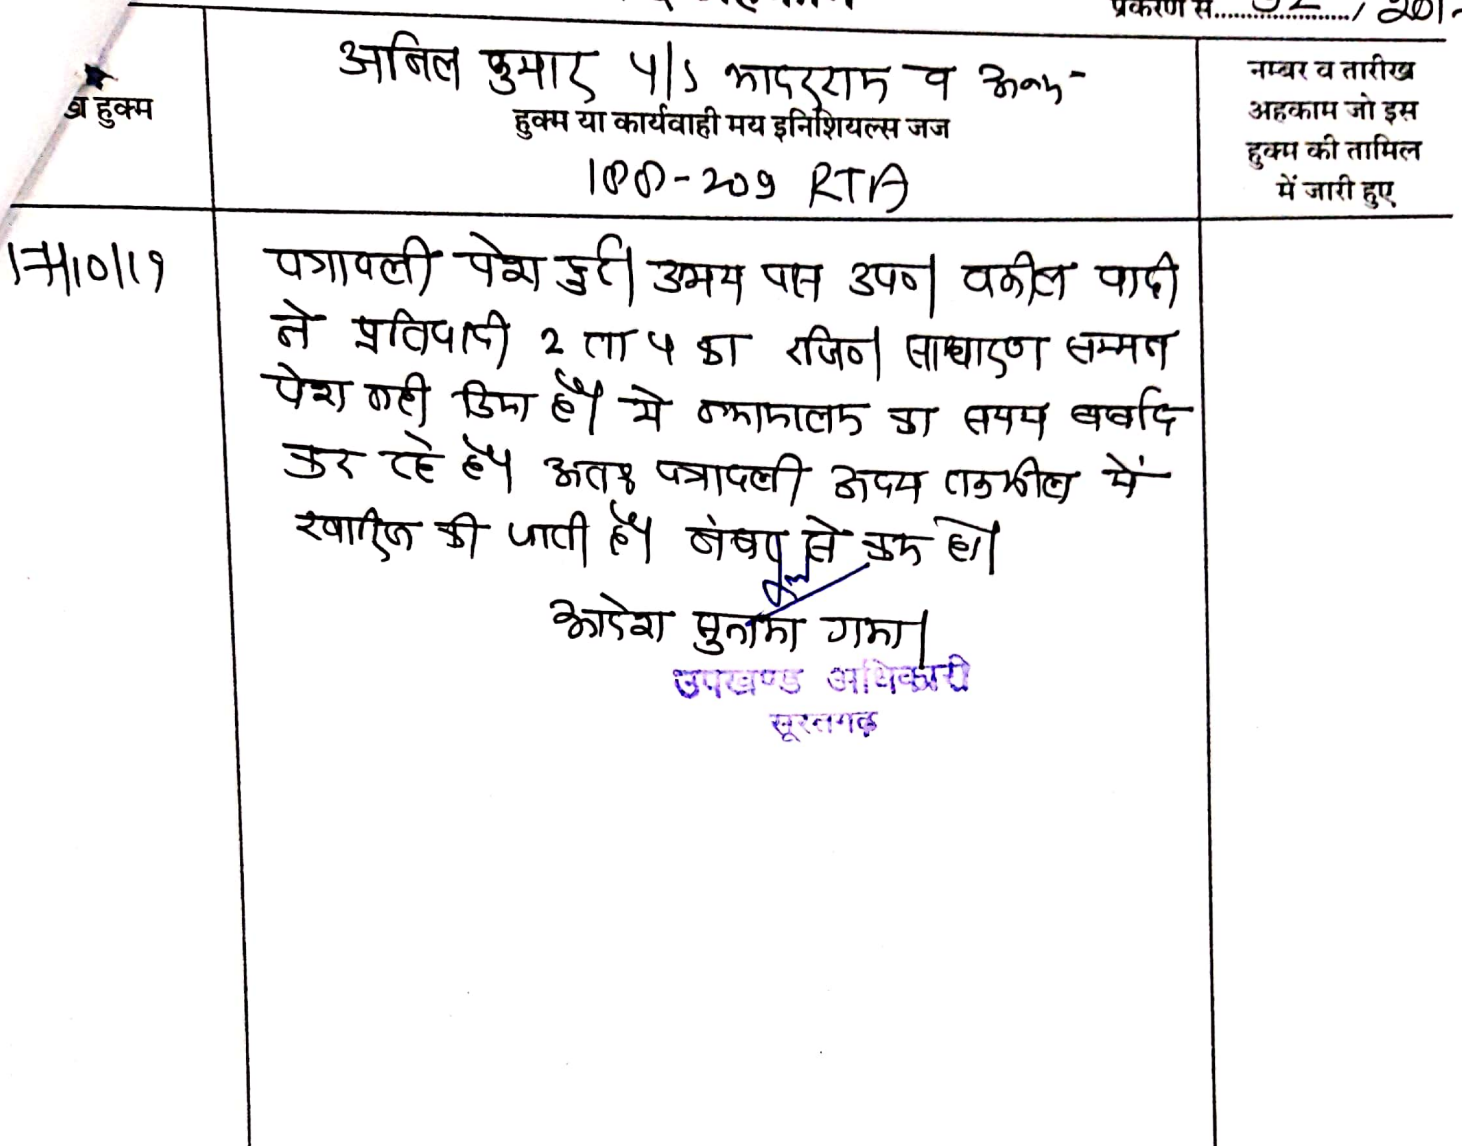 प्रकरण सं............../ 201
अनिल कुमार v/s भादरराम व अन्य
ख हुक्म
हुक्म या कार्यवाही मय इनिशियल्स जज
नम्बर व तारीख
अहकाम जो इस
हुक्म की तामिल
में जारी हुए
188-209 RTA
17/10/19
पत्रावली पेश हुई। उभय पक्ष उप०। वकील वादी
ने प्रतिवादी 2 ता 4 का रजि०। साधारण सम्मन
पेश नही किया है। ये न्यायालय का समय बर्बाद
कर रहे है। अतः पत्रावली अदम तकमील में
खारिज की जाती है। नंबर से कम हो।
आदेश सुनाया गया।
उपखण्ड अधिकारी
सूरतगढ़